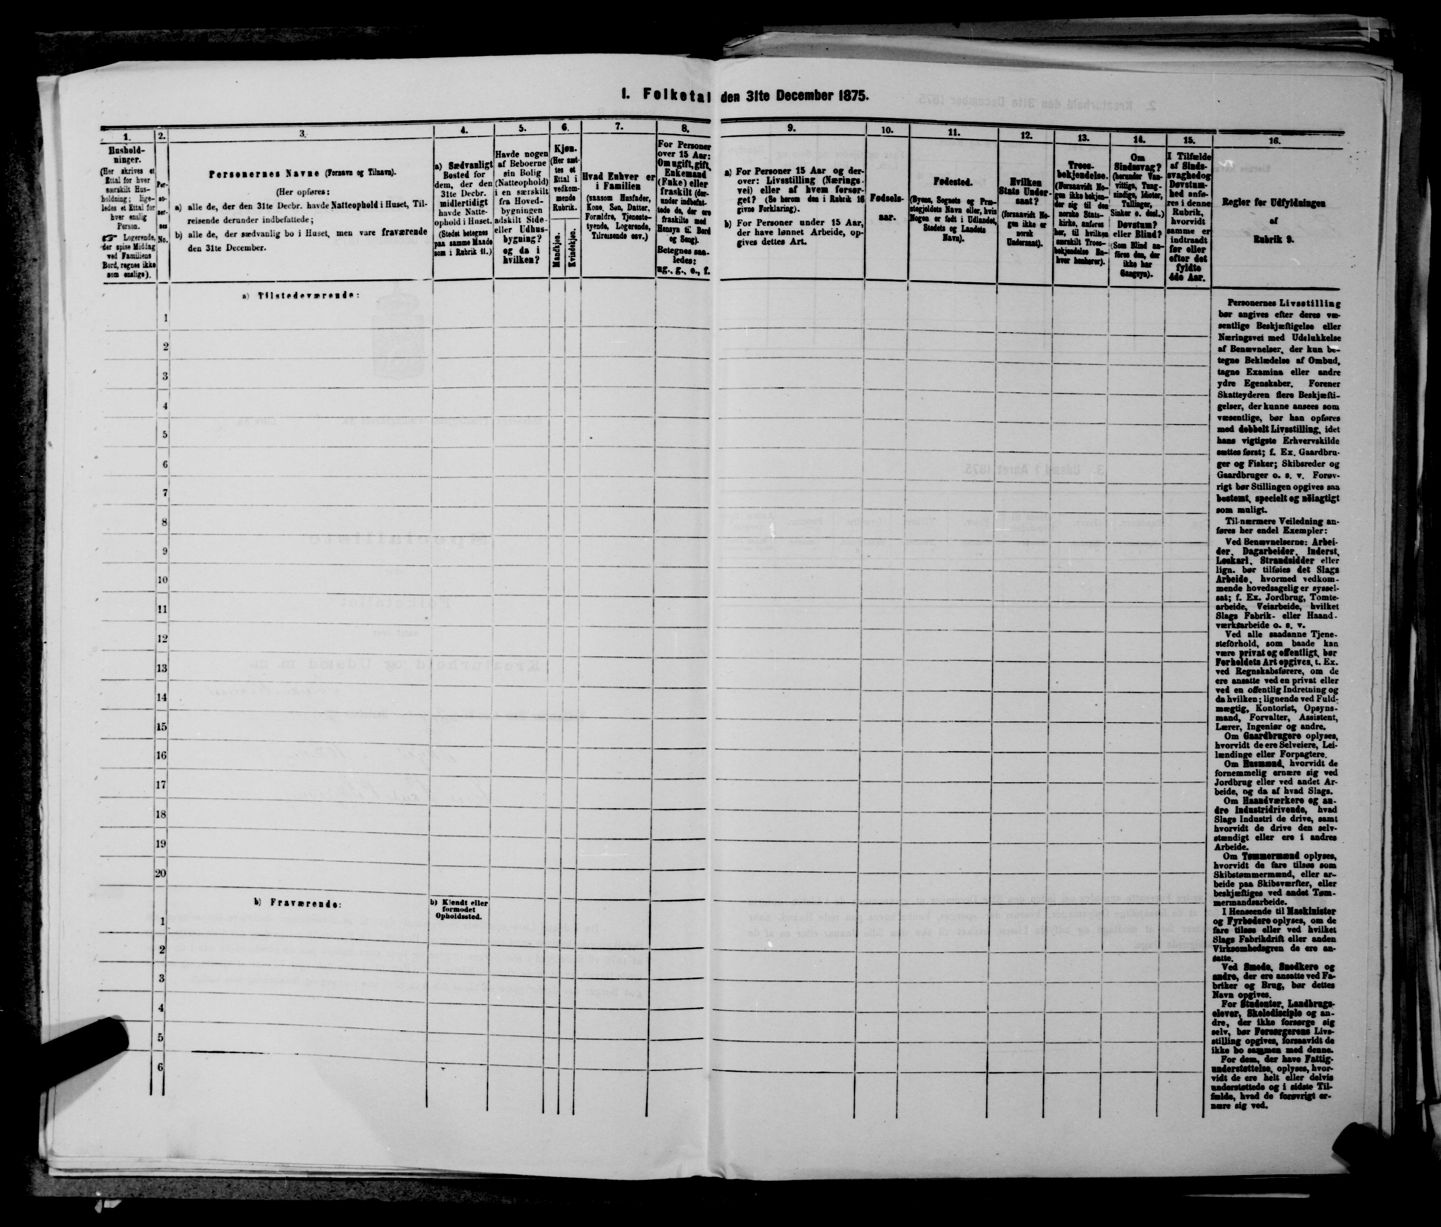 1. Folketal den 31te December 1875.
1.
Hushold-
ninger.
(Her skrives et
Ettal for hver
særskilt Hus-
holdning; lige-
ledes et Ettal for
hver enslig
Person.
Logerende,
der spise Middag
ved Familiens
Bord, regnes ikke
som enslige).
2.
Per-
so-
ner-
nes
No.
3.
Personernes Navne (Fornavn og Tilnavn).
(Her opføres:
a) alle de, der den 31te Decbr. havde Natteophold i Huset, Til-
reisende derunder indbefattede;
b) alle de, der sædvanlig bo i Huset, men vare fraværende
den 31te December.
4.
a) Sædvanligt
Bosted for
dem, der den
31te Decbr.
midlertidigt
havde Natte-
ophold i Huset.
(Stedet betegnes
paa samme Maade
som i Rubrik 11.)
5.
Havde nogen
af Beboerne
sin Bolig
(Natteophold)
i en særskilt
fra Hoved-
bygningen
adskilt Side-
eller Udhus-
bygning?
og da i
hvilken?
6.
Kjøn.
(Her sæt-
tes et
Ettal i
vedkom-
mende
Rubrik.
Mandkjøn.
Kvindekjøn.
7.
Hvad Enhver er
i Familien
(saasom Husfader,
Kone, Søn, Datter,
Forældre, Tjeneste-
tyende, Logerende,
Tilreisende osv.)
8.
For Personer
over 15 Aar:
Om ugift, gift,
Enkemand
(Enke) eller
fraskilt (der-
under indbefat-
tede de, der ere
fraskilte med
Hensyn til Bord
og Seng).
Betegnes saa-
ledes:
ug., g., e., f.
9.
a) For Personer 15 Aar og der-
over: Livsstilling (Nærings-
vei) eller af hvem forsør-
get? (Se herom den i Rubrik 16
givne Forklaring).
b) For Personer under 15 Aar,
der have lønnet Arbeide, op-
gives dettes Art.
10.
Fødsels-
aar.
11.
Fødested.
(Byens, Sognets og Præ-
stegjeldets Navn eller, hvis
Nogen er født i Udlandet,
Stedets og Landets
Navn).
12.
Hvilken
Stats Under-
saat?
(forsaavidt No-
gen ikke er
norsk
Undersaat).
13.
Troes-
bekjendelse.
(Forsaavidt No-
gen ikke bekjen-
der sig til den
norske Stats-
kirke, anføres
her, til hvilken
særskilt Troes-
bekjendelse En-
hver henhører).
14.
Om
Sindssvag?
(herunder Van-
vittige, Tung-
sindige, Idioter,
Tullinger,
Sinker o. desl.)
Døvstum?
eller Blind?
(Som Blind an-
føres den, der
ikke har
Gangsyn).
15.
I Tilfælde
af Sinds-
svaghed og
Døvstum-
hed anfø-
res i denne
Rubrik,
hvorvidt
samme er
indtraadt
før eller
efter det
fyldte
4de Aar.
16.
Regler for Udfyldningen
af
Rubrik 9.
a) Tilstedeværende:
1
2
3
4
5
6
7
8
9
10
11
12
13
14
15
16
17
18
19
20
b) Fraværende:
b) Kjendt eller
formodet
Opholdssted.
1
2
3
4
5
6
Personernes Livsstilling
bør angives efter deres væ-
sentlige Beskjæftigelse eller
Næringsvei med Udelukkelse
af Benævnelser, der kun be-
tegne Beklædelse af Ombud,
tagne Examina eller andre
ydre Egenskaber. Forener
Skatteyderen flere Beskjæfti-
gelser, der kunne ansees som
væsentlige, bør han opføres
med dobbelt Livsstilling, idet
hans vigtigste Erhvervskilde
sættes først; f. Ex. Gaardbru-
ger og Fisker; Skibsreder og
Gaardbruger o. s. v. Forøv-
rigt bør Stillingen opgives saa
bestemt, specielt og nøiagtigt
som muligt.
Til nærmere Veiledning an-
føres her endel Exempler:
Ved Benævnelserne: Arbei-
der, Dagarbeider, Inderst,
Løskarl, Strandsidder eller
lign. bør tilføies det Slags
Arbeide, hvormed vedkom-
mende hovedsagelig er syssel-
sat; f. Ex. Jordbrug, Tomte-
arbeide, Veiarbeide, hvilket
Slags Fabrik- eller Haand-
værksarbeide o. s. v.
Ved alle saadanne Tjene-
steforhold, som baade kan
være privat og offentligt, bør
Forholdets Art opgives, t. Ex.
ved Regnskabsførere, om de
ere ansatte ved en privat eller
ved en offentlig Indretning og
da hvilken; lignende ved Fuld-
mægtig, Kontorist, Opsyns-
mand, Forvalter, Assistent,
Lærer, Ingeniør og andre.
Om Gaardbrugere oplyses,
hvorvidt de ere Selveiere, Lei-
lændinge eller Forpagtere.
Om Husmænd, hvorvidt de
fornemmelig ernære sig ved
Jordbrug eller ved andet Ar-
beide, og da af hvad Slags.
Om Haandværkere og an-
dre Industridrivende, hvad
Slags Industri de drive, samt
hvorvidt de drive den selv-
stændigt eller ere i andres
Arbeide.
Om Tømmermænd oplyses,
hvorvidt de fare tilsøs som
Skibstømmermænd, eller ar-
beide paa Skibsværfter, eller
beskjæftiges ved andet Tøm-
mermandsarbeide.
I Henseende til Maskinister
og Fyrbødere oplyses, om de
fare tilsøs eller ved hvilket
Slags Fabrikdrift eller anden
Virksomhedsgren de ere an-
satte.
Ved Smede, Snedkere og
andre, der ere ansatte ved Fa-
briker og Brug, bør dettes
Navn opgives.
For Studenter, Landbrugs-
elever, Skoledisciple og an-
dre, der ikke forsørge sig
selv, bør Forsørgerens Livs-
stilling opgives, forsaavidt de
ikke bo sammen med denne.
For dem, der have Fattig-
understøttelse, oplyses, hvor-
vidt de ere helt eller delvis
understøttede og i sidste Til-
fælde, hvad de forøvrigt er-
nære sig ved.